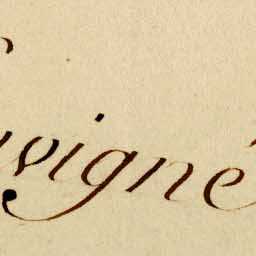 vigné